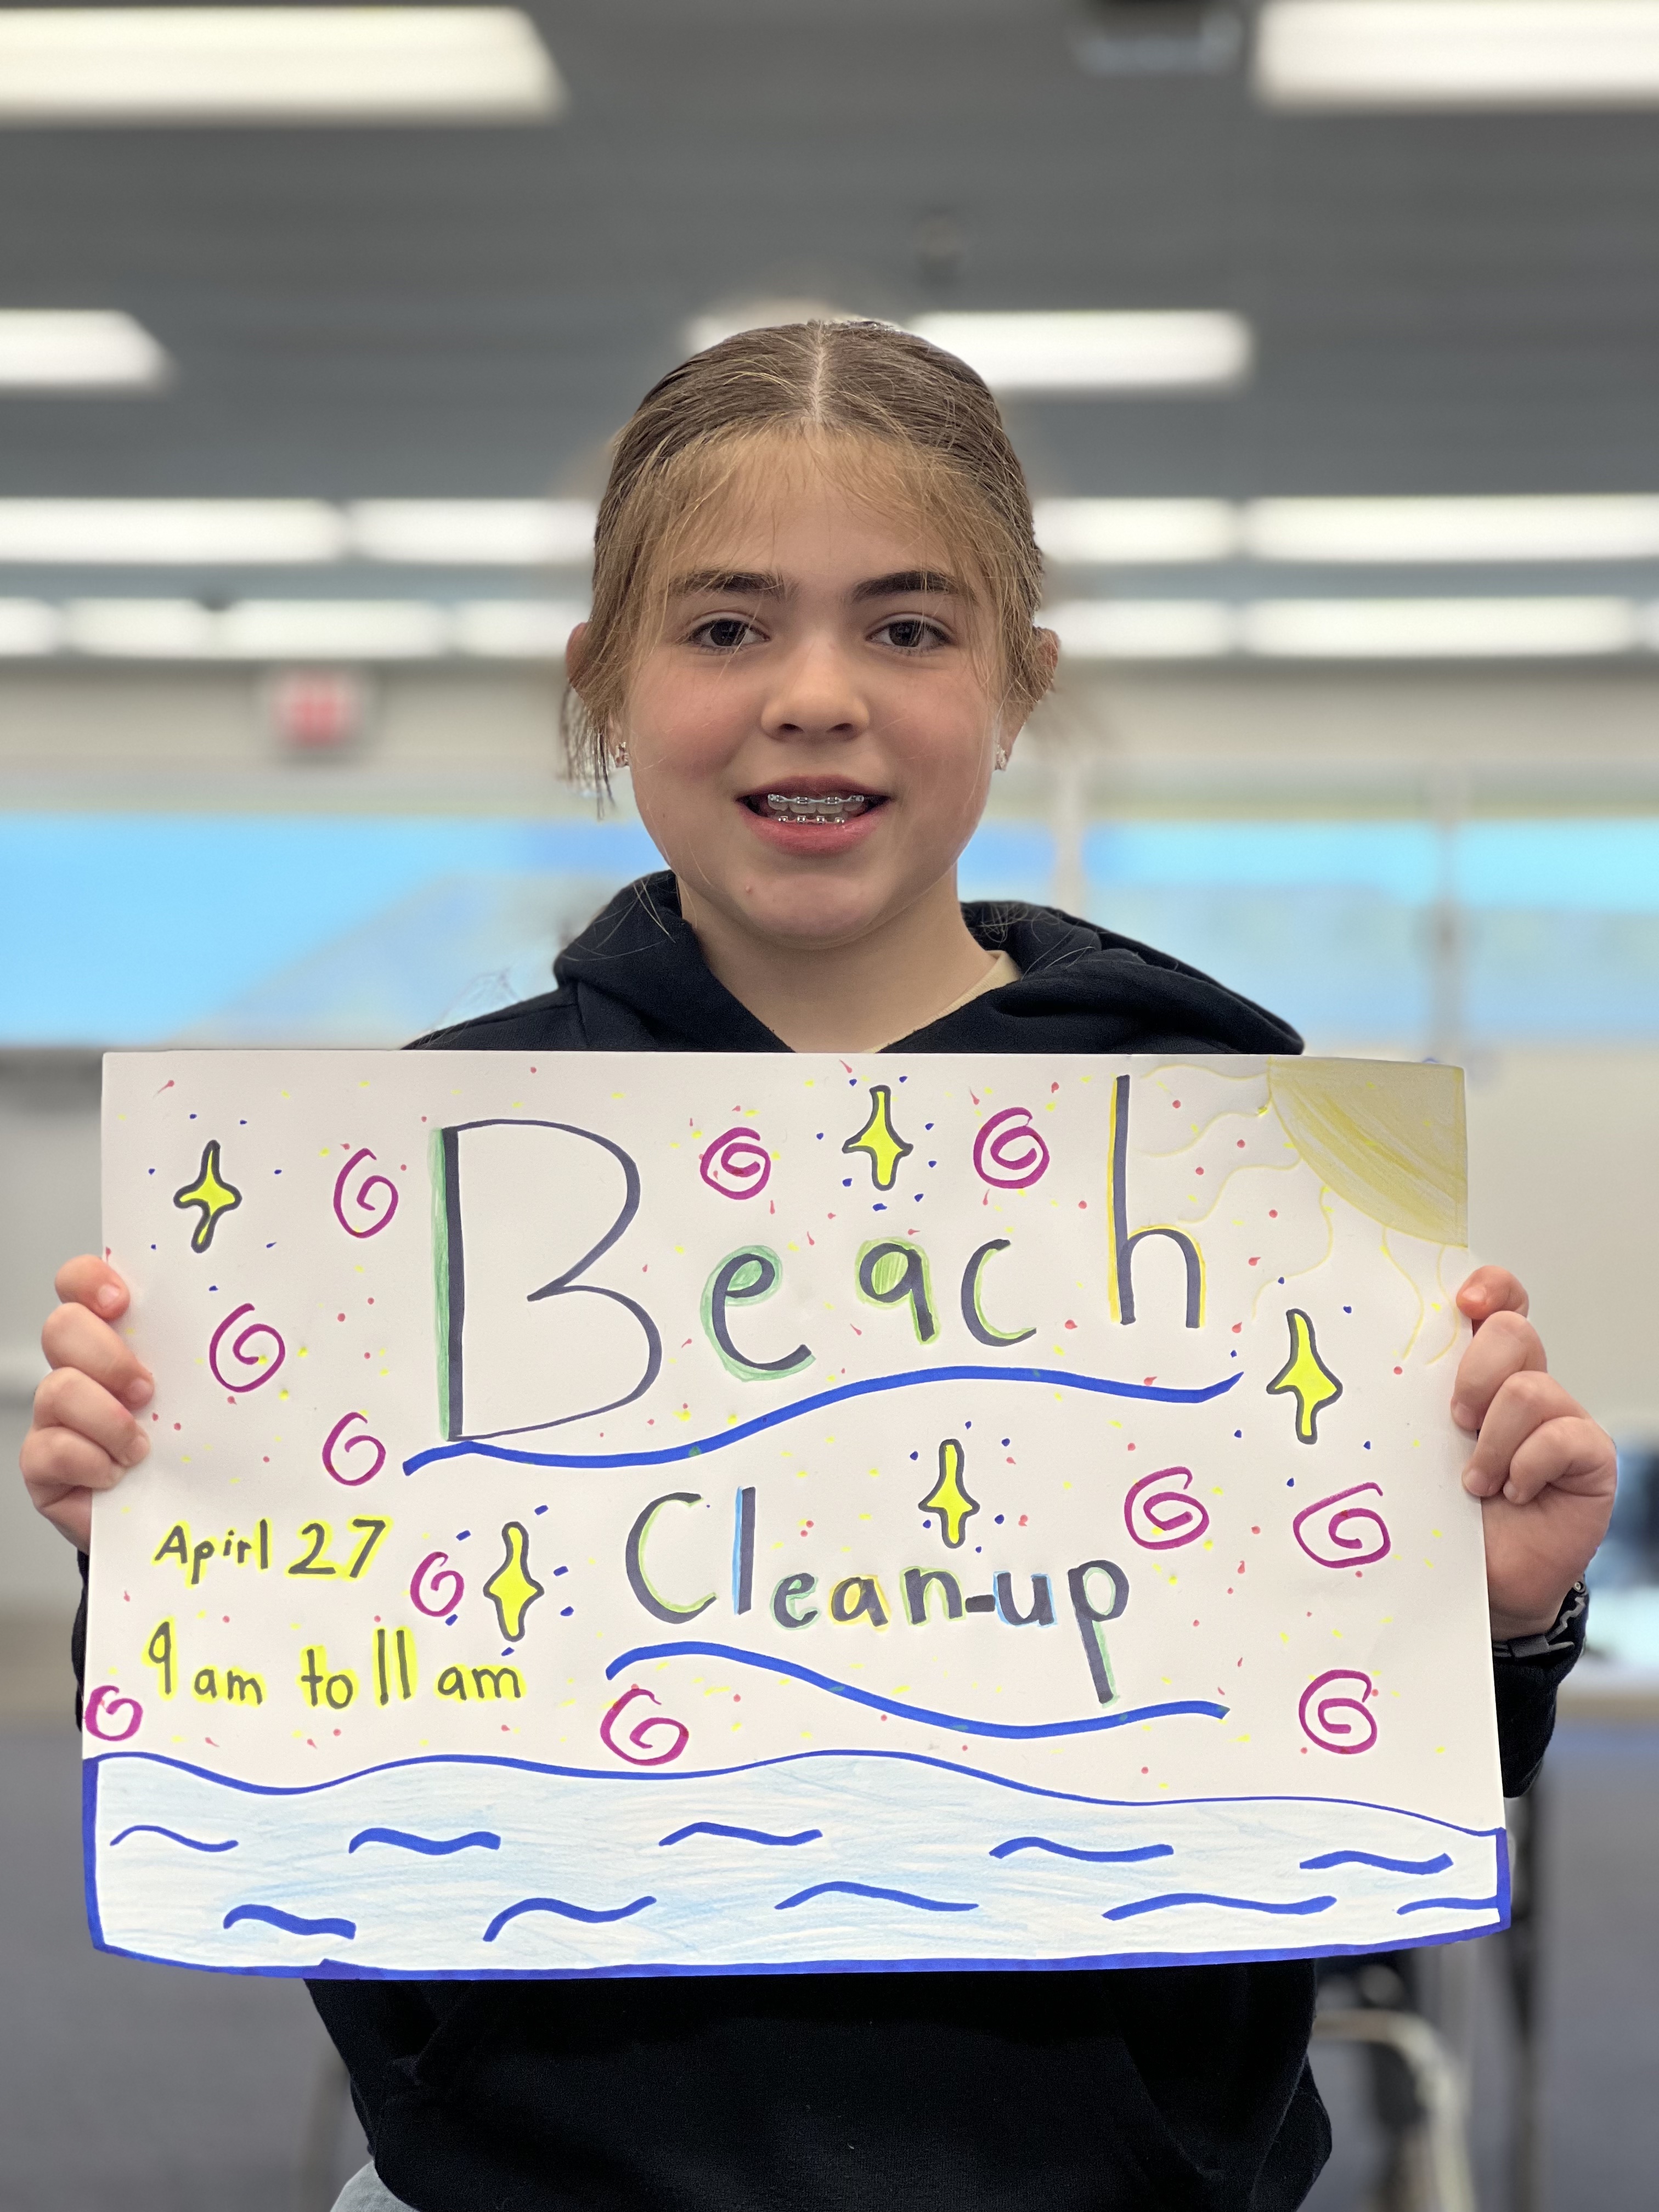 Beach
Clean-up
Apirl 27
9am to 11am